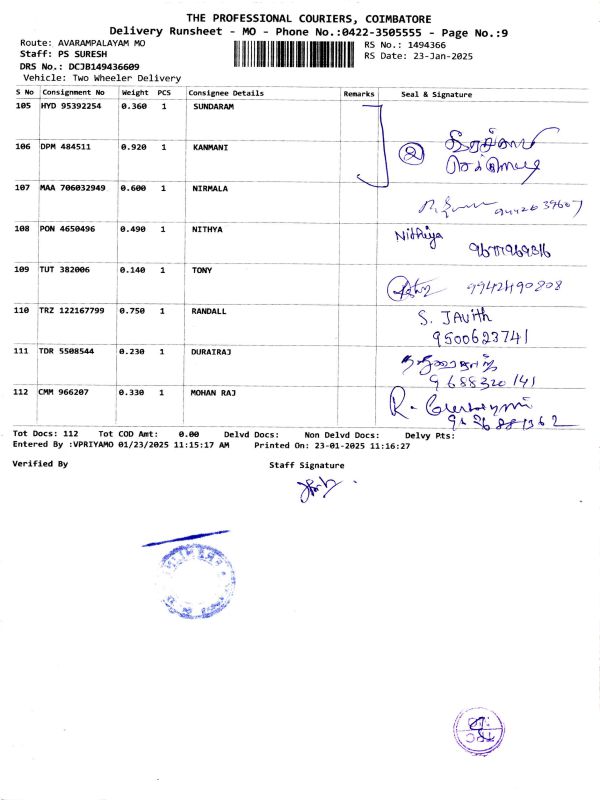 THE PROFESSIONAL COURIERS, COIMBATORE
Delivery Runsheet - MO - Phone No.:0422-3505555 - Page No.:9
Route: AVARAMPALAYAM MO
RS No.: 1494366
Staff: PS SURESH
RS Date: 23-Jan-2025
DRS No.: DCJB149436609
Vehicle: Two Wheeler Delivery
S No Consignment No Weight PCS Consignee Details Remarks Seal & Signature
105 HYD 95392254 0.360 1 SUNDARAM
106 DPM 484511 0.920 1 KANMANI
107 MAA 706032949 0.600 1 NIRMALA
108 PON 4650496 0.490 1 NITHYA Nithiya
109 TUT 382006 0.140 1 TONY 9942490808
110 TRZ 122167799 0.750 1 RANDALL S. JAVith
9500623741
111 TDR 5508544 0.230 1 DURAIRAJ
9688320141
112 CMM 966207 0.330 1 MOHAN RAJ
Tot Docs: 112 Tot COD Amt: 0.00 Delvd Docs: Non Delvd Docs: Delvy Pts:
Entered By :VPRIYAMO 01/23/2025 11:15:17 AM Printed On: 23-01-2025 11:16:27
Verified By Staff Signature